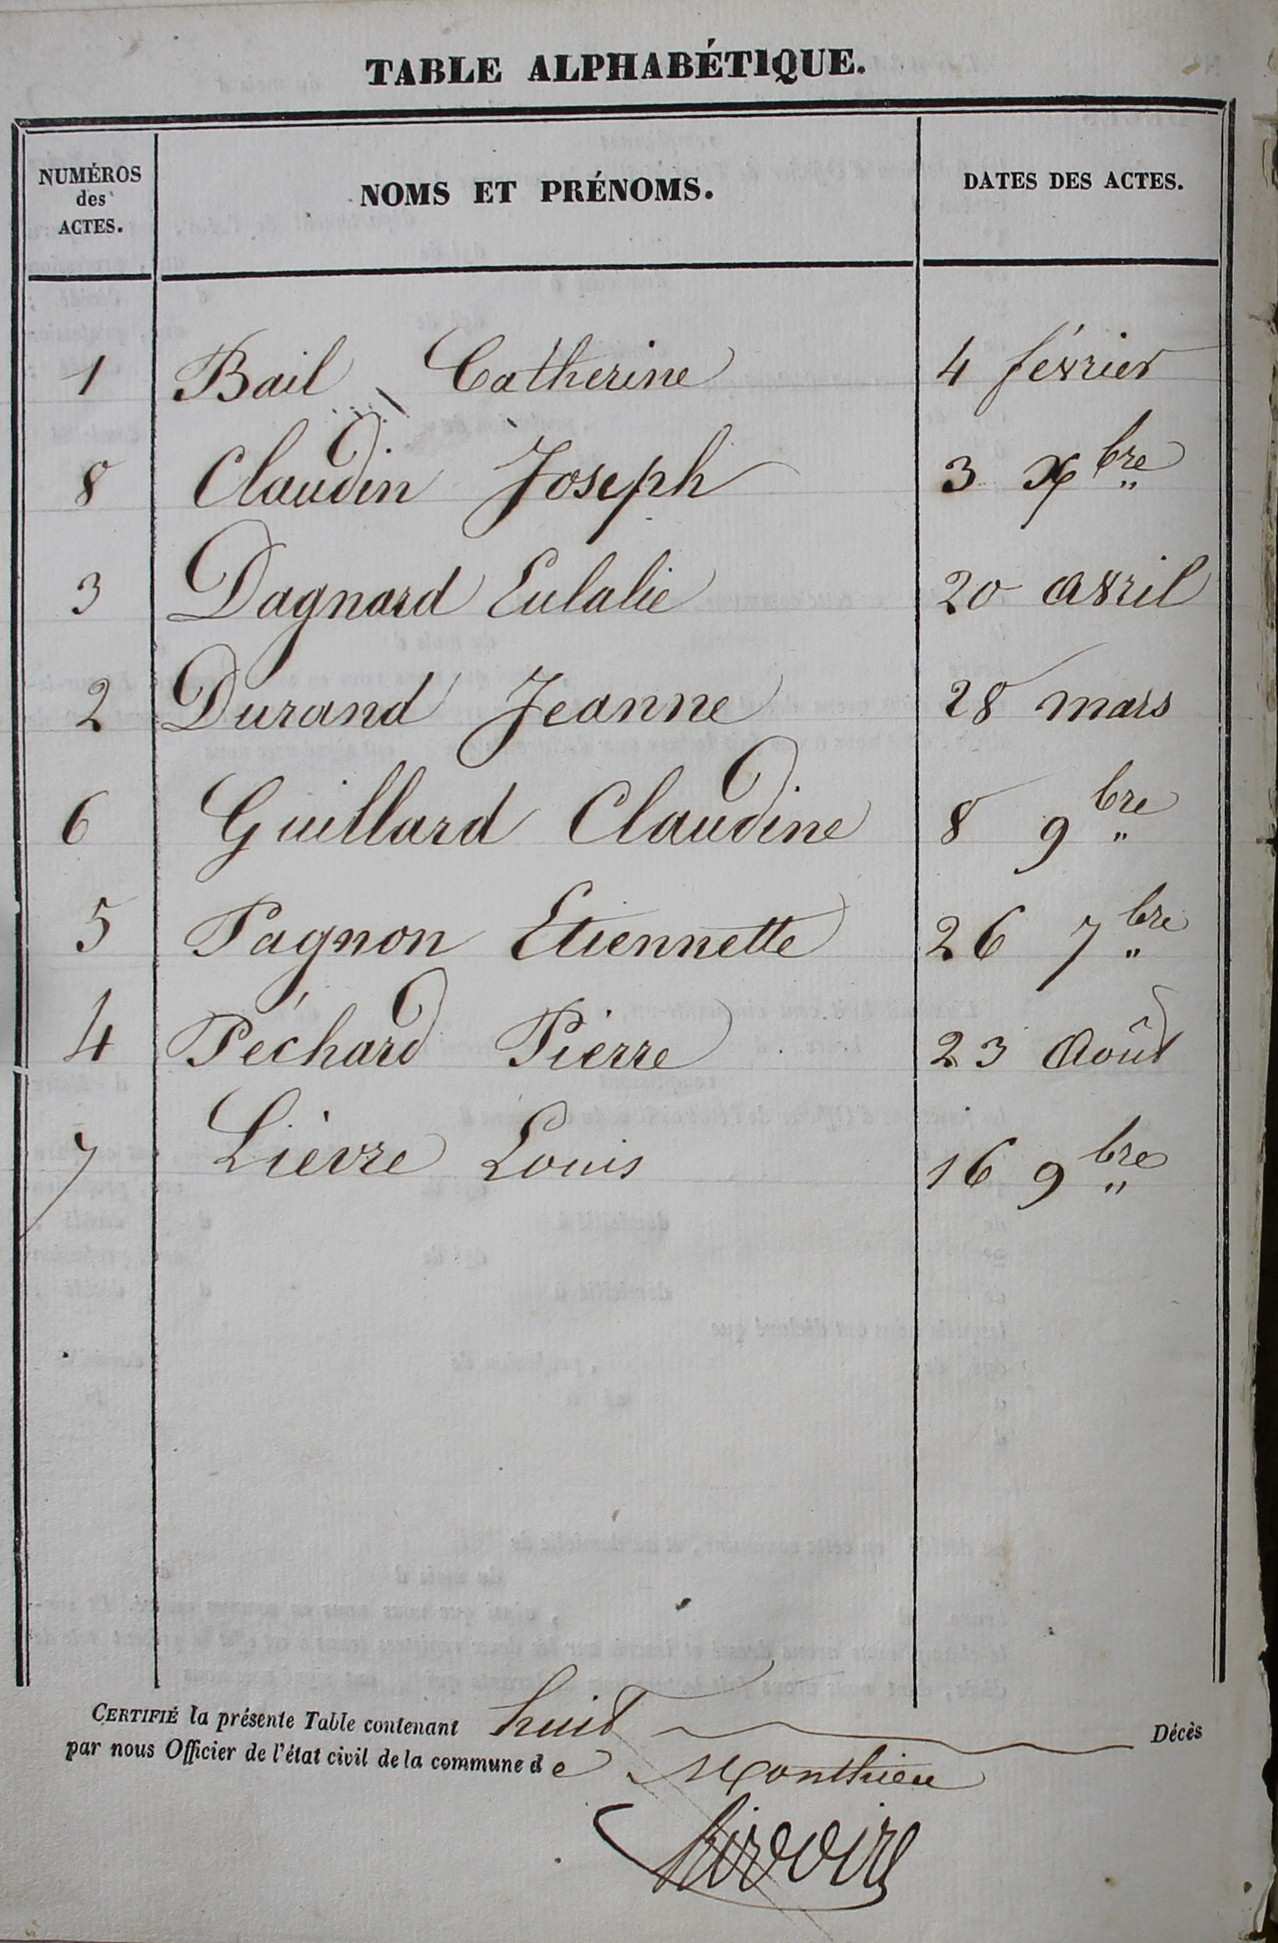 TABLE ALPHABÉTIQUE.
NUMÉROS des ACTES. NOMS ET PRÉNOMS. DATES DES ACTES.
1 Bail Catherine 4 février
8 Claudin Joseph 3 Xbre
3 Dagnard Eulalie 20 avril
2 Durand Jeanne 28 mars
6 Guillard Claudine 8 9bre
5 Pagnon Etiennette 26 7bre
4 Péchard Pierre 23 Août
7 Lièvre Louis 16 9bre
CERTIFIÉ la présente Table contenant huit Décès
par nous Officier de l'état civil de la commune de Monthieu
Rivoire